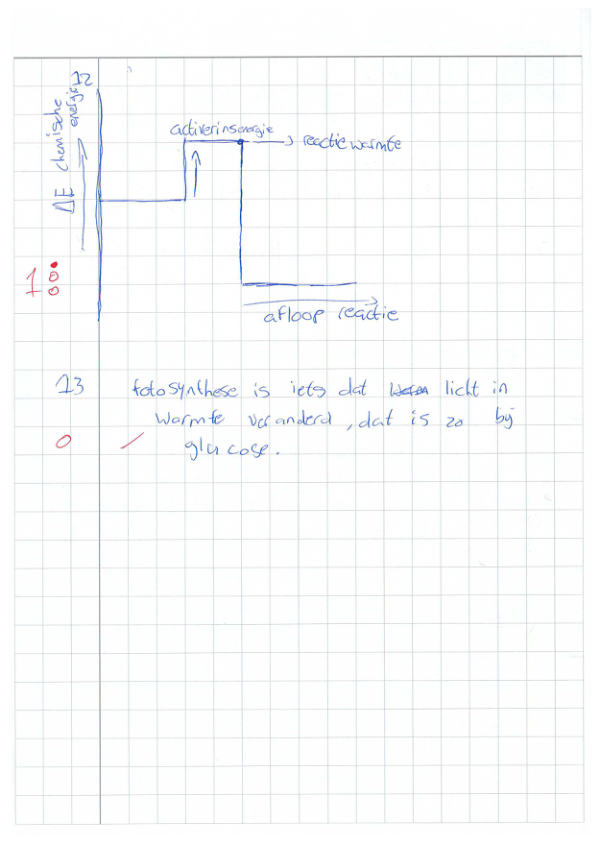 12
ΔE chemische
energie
activerinsenergie
→ reactiewarmte
1
afloop reactie
13 fotosynthese is iets dat licht in
warmte veranderd, dat is zo bij
0
glucose.